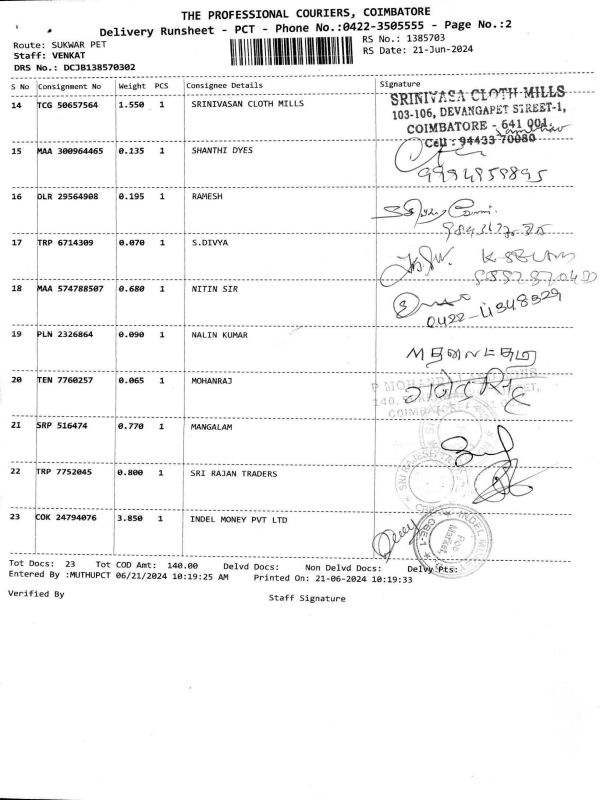 THE PROFESSIONAL COURIERS, COIMBATORE
Delivery Runsheet - PCT - Phone No.:0422-3505555 - Page No.:2
Route: SUKWAR PET
RS No.: 1385703
Staff: VENKAT
RS Date: 21-Jun-2024
DRS No.: DCJB138570302
S No Consignment No Weight PCS Consignee Details Signature
14 TCG 50657564 1.550 1 SRINIVASAN CLOTH MILLS
SRINIVASA CLOTH MILLS
103-106, DEVANGAPET STREET-1,
COIMBATORE - 641 001.
Cell : 94433 70080
15 MAA 300964465 0.135 1 SHANTHI DYES
9994959895
16 DLR 29564908 0.195 1 RAMESH
17 TRP 6714309 0.070 1 S.DIVYA
18 MAA 574788507 0.680 1 NITIN SIR
0422-4348329
19 PLN 2326864 0.090 1 NALIN KUMAR
20 TEN 7760257 0.065 1 MOHANRAJ
21 SRP 516474 0.770 1 MANGALAM
22 TRP 7752045 0.800 1 SRI RAJAN TRADERS
23 COK 24794076 3.850 1 INDEL MONEY PVT LTD
Tot Docs: 23 Tot COD Amt: 140.00 Delvd Docs: Non Delvd Docs: Delvy Pts:
Entered By :MUTHUPCT 06/21/2024 10:19:25 AM Printed On: 21-06-2024 10:19:33
Verified By
Staff Signature